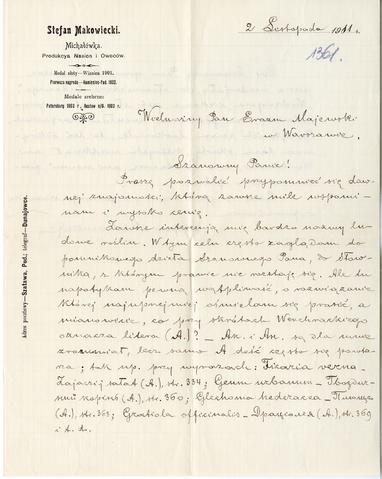 Stefan Makowiecki.
Michałówka.
Produkcya Nasion i Owoców.
Medal złoty—Winnica 1901.
Pierwsza nagroda—Kamieniec-Pod. 1902.
Medale srebrne:
Petersburg 1903 r., Rostów n/D. 1903 r.
Adres pocztowy—Szatawa, Pod.; telegraf—Dunajowce.
2 Listopada 1911 r.
1361.
Wielmożny Pan Erazm Majewski
w Warszawie.
Szanowny Panie!
Proszę pozwolić przypomnieć się daw-
nej znajomości, którą zawsze mile wspomi-
nam i wysoko cenię.
Zawsze interesują mię bardzo nazwy lu-
dowe roślin. W tym celu często zaglądam do
pomnikowego dzieła Szanownego Pana, do Słow-
nika, z którym prawie nie rozstaję się. Ale tu
napotykam pewną wątpliwość, o rozwiązanie
której najuprzejmiej ośmielam się prosić, a
mianowicie, co przy skrótach Werchrackiego
oznacza litera (A.)? — Ak. i An. są dla mnie
zrozumiałe, lecz samo A dość często się powta-
rza; tak np. przy wyrazach: Ficaria verna-
Zajaczij sałat (A.), str. 334; Geum urbanum -
корень (A.), str. 360; Glechoma hederacea -
(A.), str. 363; Gratiola officinalis - Драцоля (A.), str. 369
i t. d.